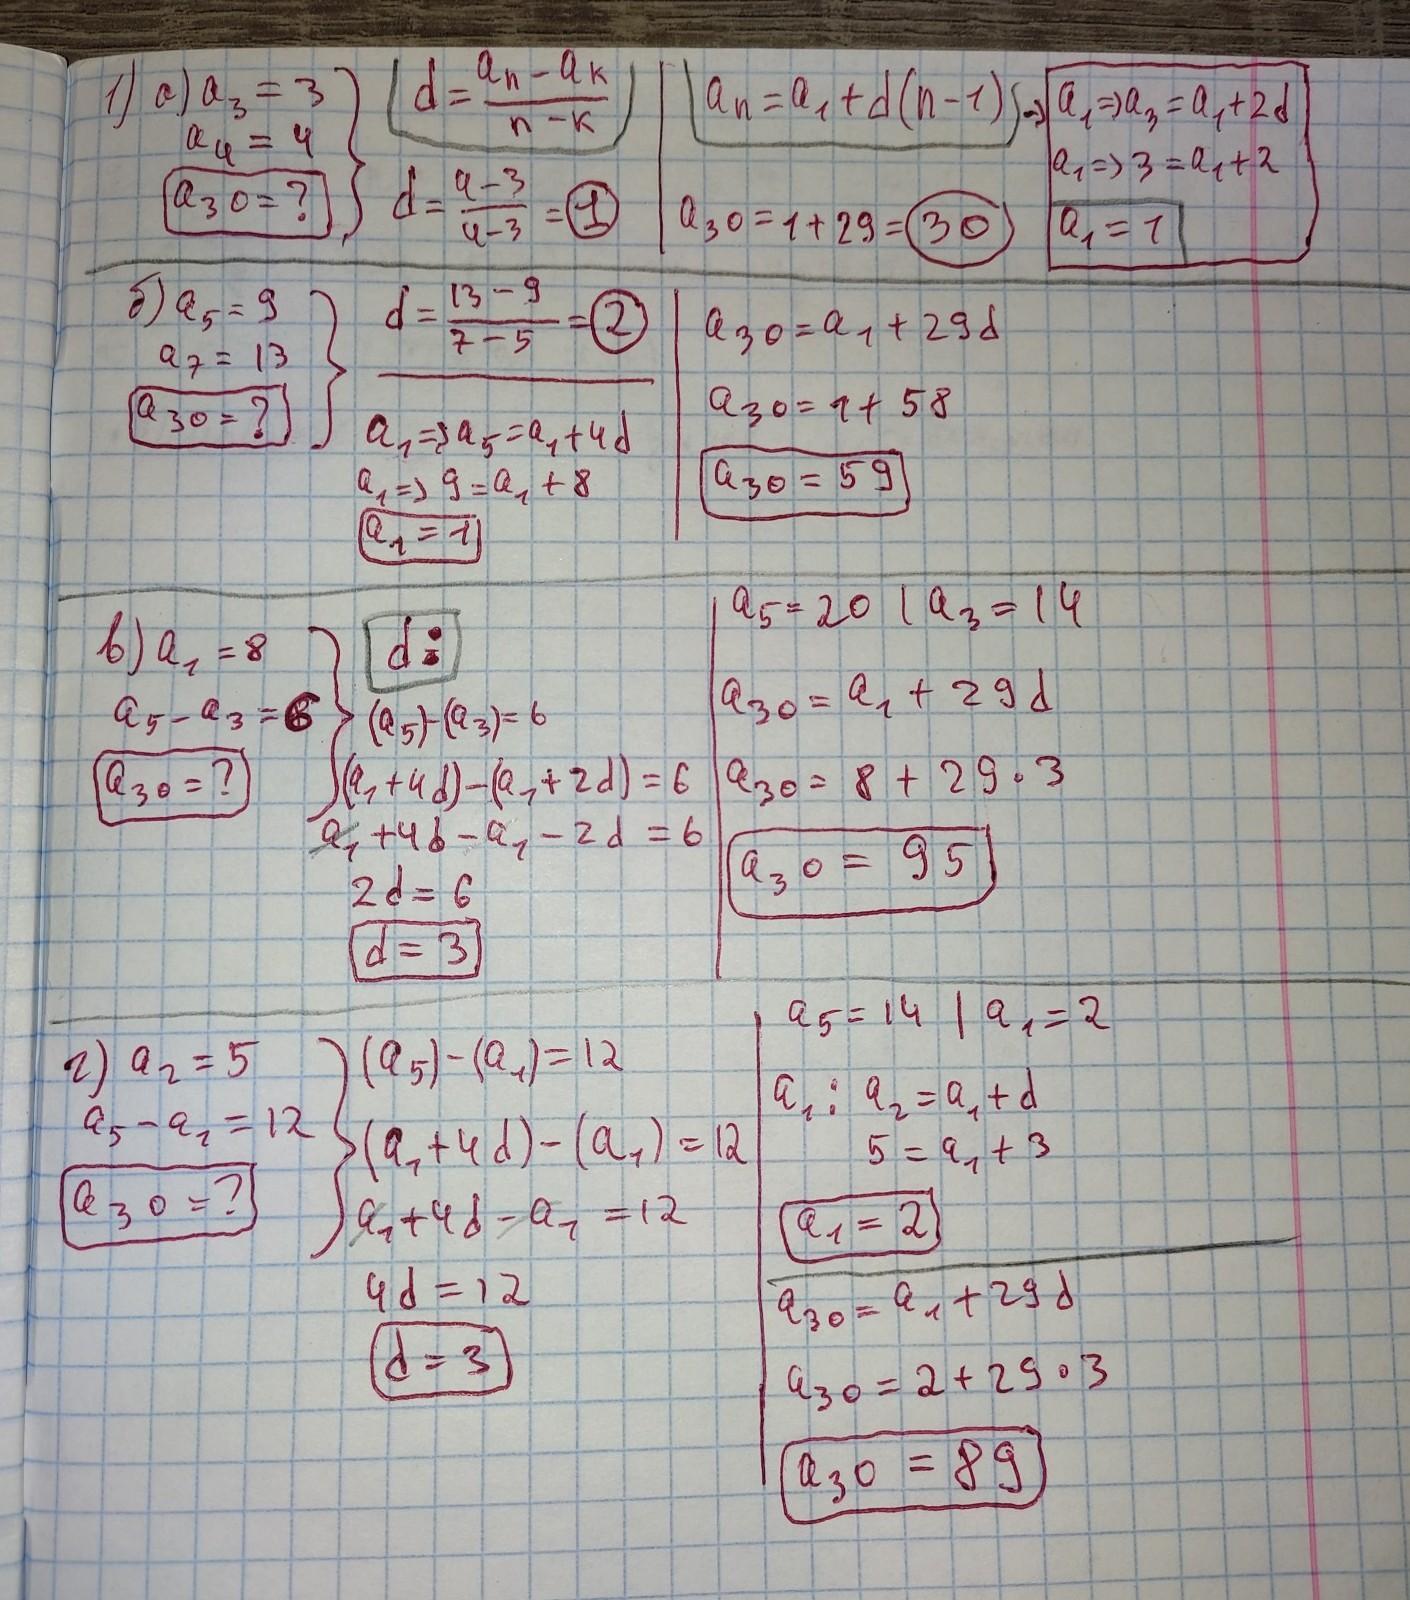 1) а) a₃ = 3
a₄ = 4
a₃₀ = ?
d = (aₙ - aₖ)/(n - k)
d = (4 - 3)/(4 - 3) = 1
aₙ = a₁ + d(n - 1) ⇒
a₃₀ = 1 + 29 = 30
a₁ ⇒ a₃ = a₁ + 2d
a₁ ⇒ 3 = a₁ + 2
a₁ = 1
б) a₅ = 9
a₇ = 13
a₃₀ = ?
d = (13 - 9)/(7 - 5) = 2
a₁ ⇒ a₅ = a₁ + 4d
a₁ ⇒ 9 = a₁ + 8
a₁ = 1
a₃₀ = a₁ + 29d
a₃₀ = 1 + 58
a₃₀ = 59
в) a₁ = 8
a₅ - a₃ = 6
a₃₀ = ?
d:
(a₅) - (a₃) = 6
(a₁ + 4d) - (a₁ + 2d) = 6
a₁ + 4d - a₁ - 2d = 6
2d = 6
d = 3
a₅ = 20 | a₃ = 14
a₃₀ = a₁ + 29d
a₃₀ = 8 + 29 · 3
a₃₀ = 95
г) a₂ = 5
a₅ - a₁ = 12
a₃₀ = ?
(a₅) - (a₁) = 12
(a₁ + 4d) - (a₁) = 12
a₁ + 4d - a₁ = 12
4d = 12
d = 3
a₅ = 14 | a₁ = 2
a₁: a₂ = a₁ + d
5 = a₁ + 3
a₁ = 2
a₃₀ = a₁ + 29d
a₃₀ = 2 + 29 · 3
a₃₀ = 89